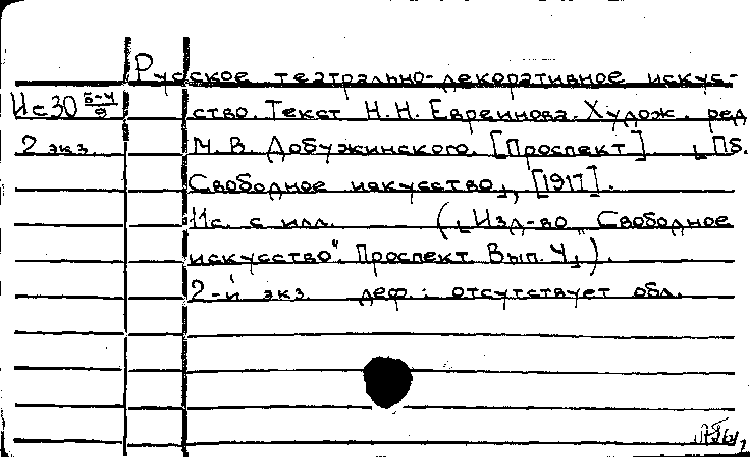 Русское театрально-декоративное искус-
Ис30 Б-4/9 ство. Текст Н.Н. Евреинова. Худож. ред
2 экз. М.В. Добужинского. [Проспект]. ⌊Пб.
Свободное искусство⌋, [1917].
11с. с илл. (⌊Изд-во „Свободное
искусство". Проспект. Вып. 4⌋).
2-й экз. деф.: отсутствует обл.